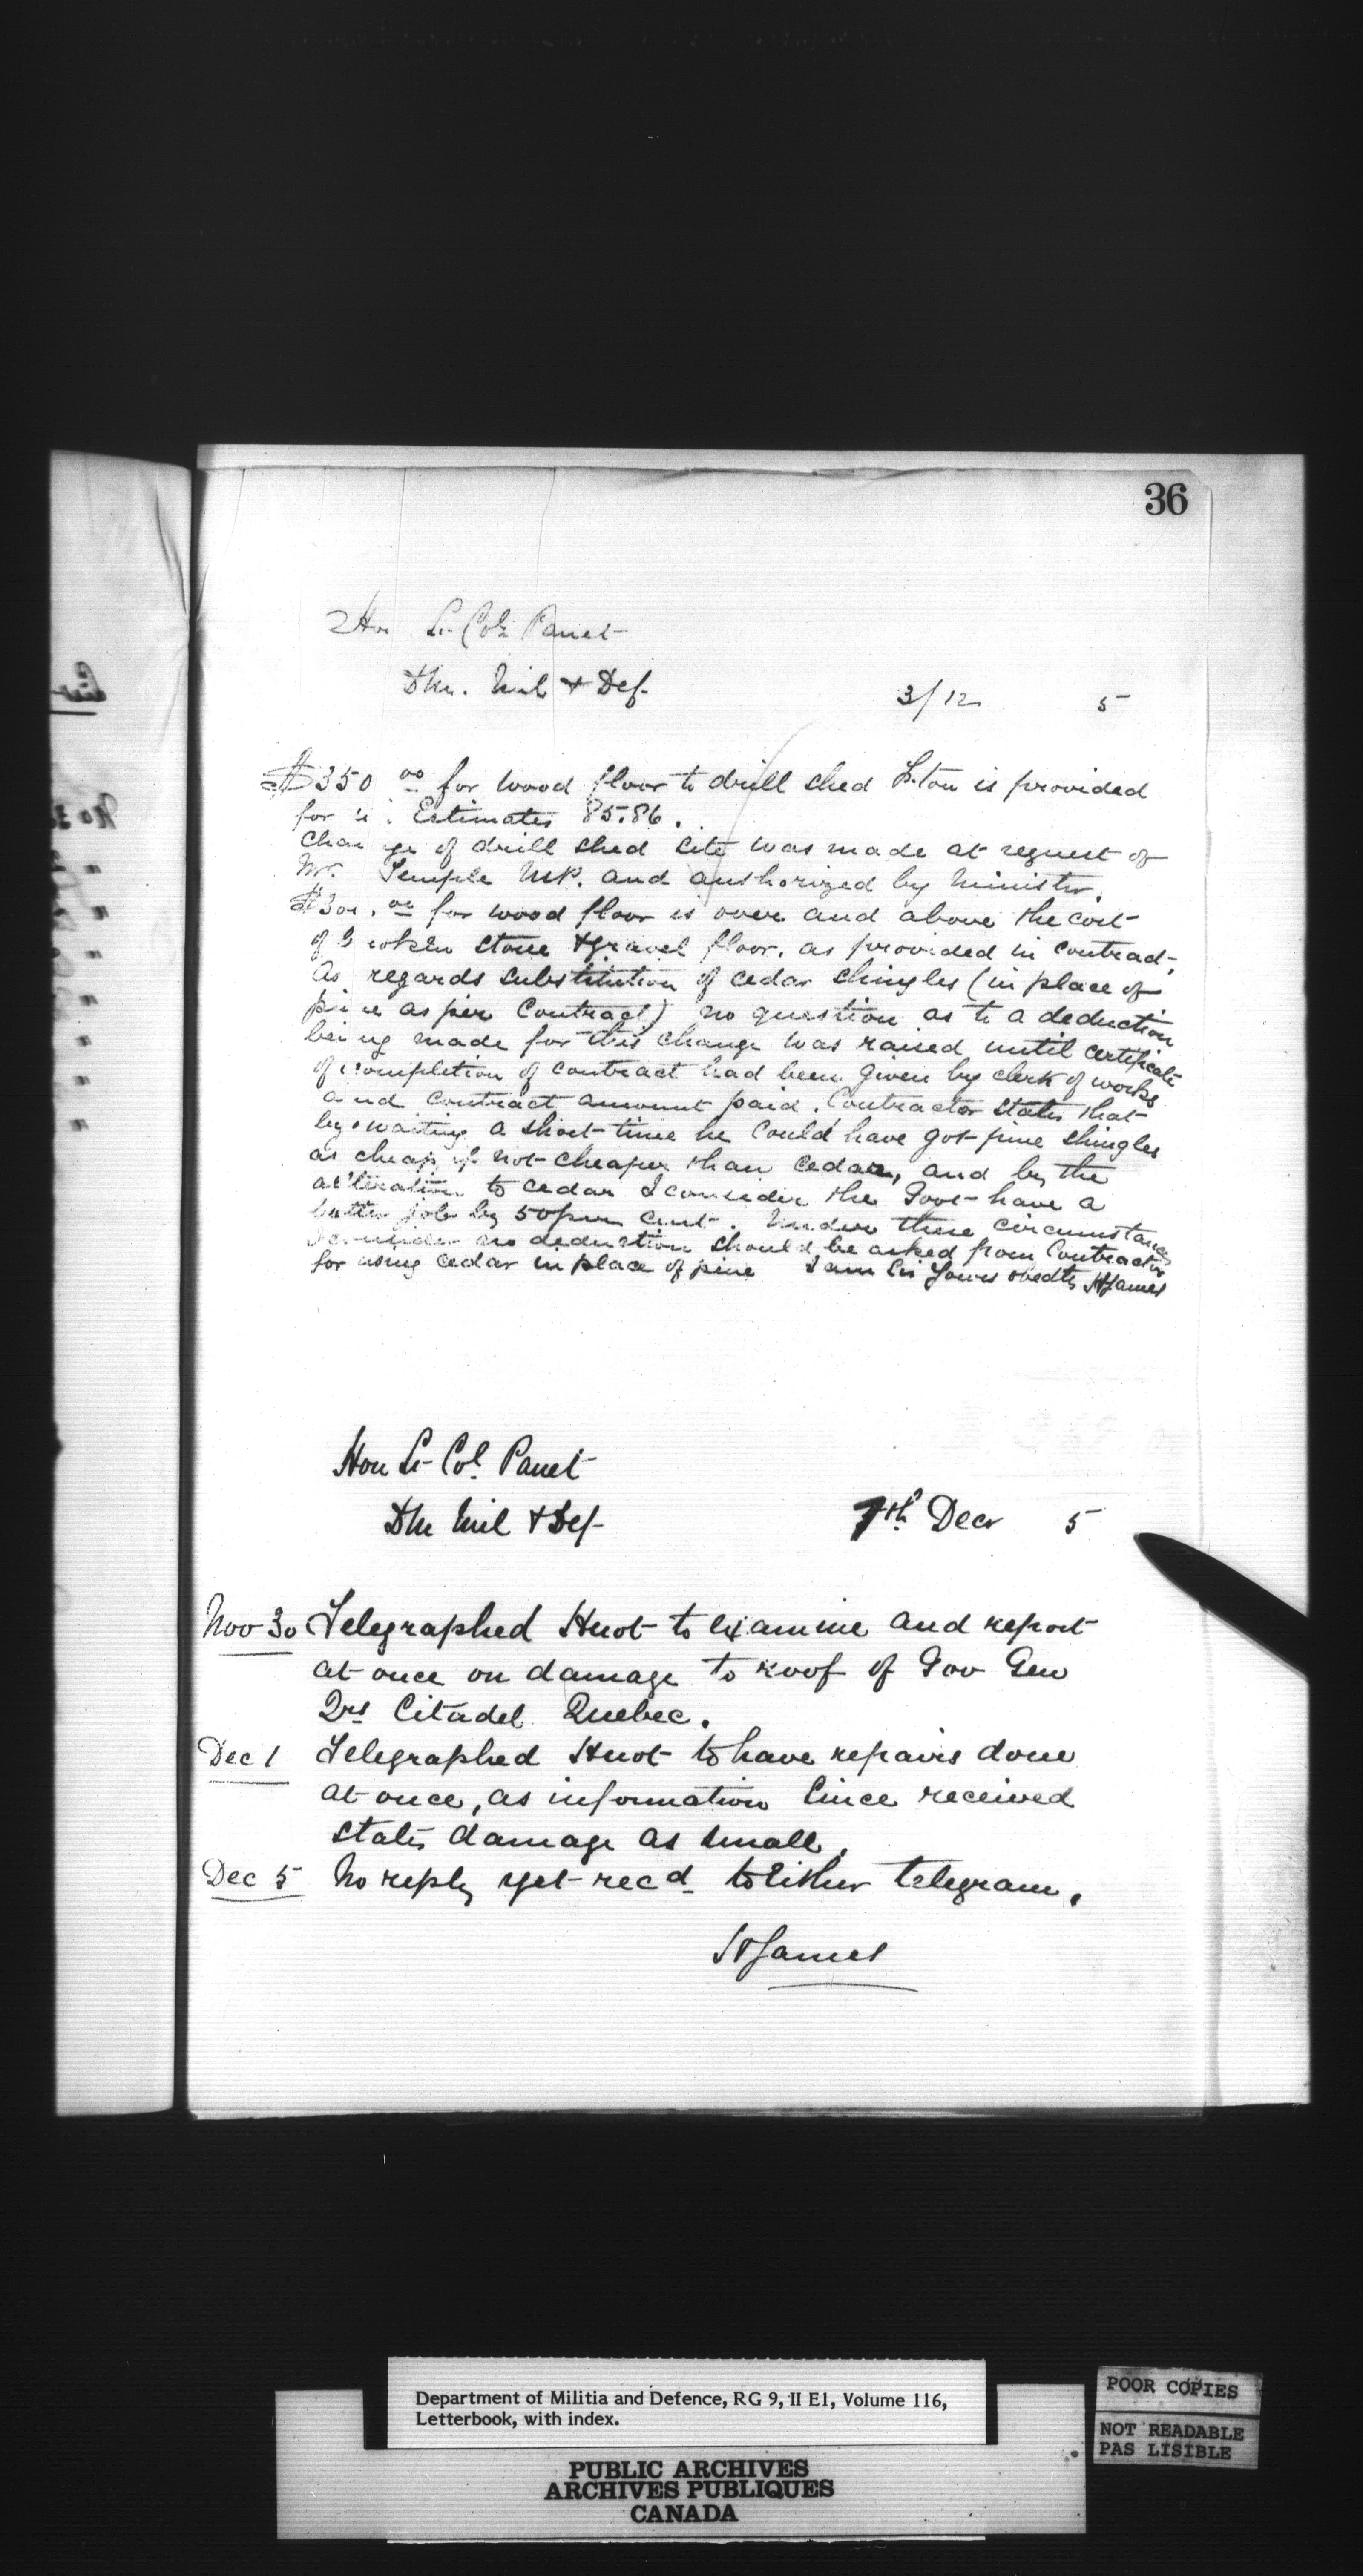 36
Hon Lt Col Panet
DM. Mil & Def
3/12 5
$350 00 for wood floor to drill shed F.ton is provided
for i Estimates 85.86.
Chan ge of drill shed site was made at request of
Mr. Temple MP. and authorized by Minister.
$300. 00 for wood floor is over and above the cost
of B roken stone & gravel floor, as provided in contract.
As regards substitution of cedar shingles (in place of
pine as per Contract) no question as to a deduction
being made for this change was raised until certificate
of completion of contract had been given by clerk of works
and contract amount paid. Contractor states that
by waiting a short time he could have got pine shingles
as cheap if not cheaper than cedar, and by the
alteration to cedar I consider the Govt have a
better job by 50 per cent. Under these circumstances
I consider no deduction should be asked from Contractor
for using cedar in place of pine I am Sir Yours obedtly HJames
Hon Lt Col Panet
DM Mil & Def
7th Decr 5
Nov 30 Telegraphed Huot to examine and report
at once on damage to roof of Gov Gen
Qrs Citadel Quebec.
Dec 1 Telegraphed Huot to have repairs done
at once, as information since received
states damage as small.
Dec 5 No reply yet recd to either telegram.
HJames
Department of Militia and Defence, RG 9, II E1, Volume 116,
Letterbook, with index.
PUBLIC ARCHIVES
ARCHIVES PUBLIQUES
CANADA
POOR COPIES
NOT READABLE
PAS LISIBLE